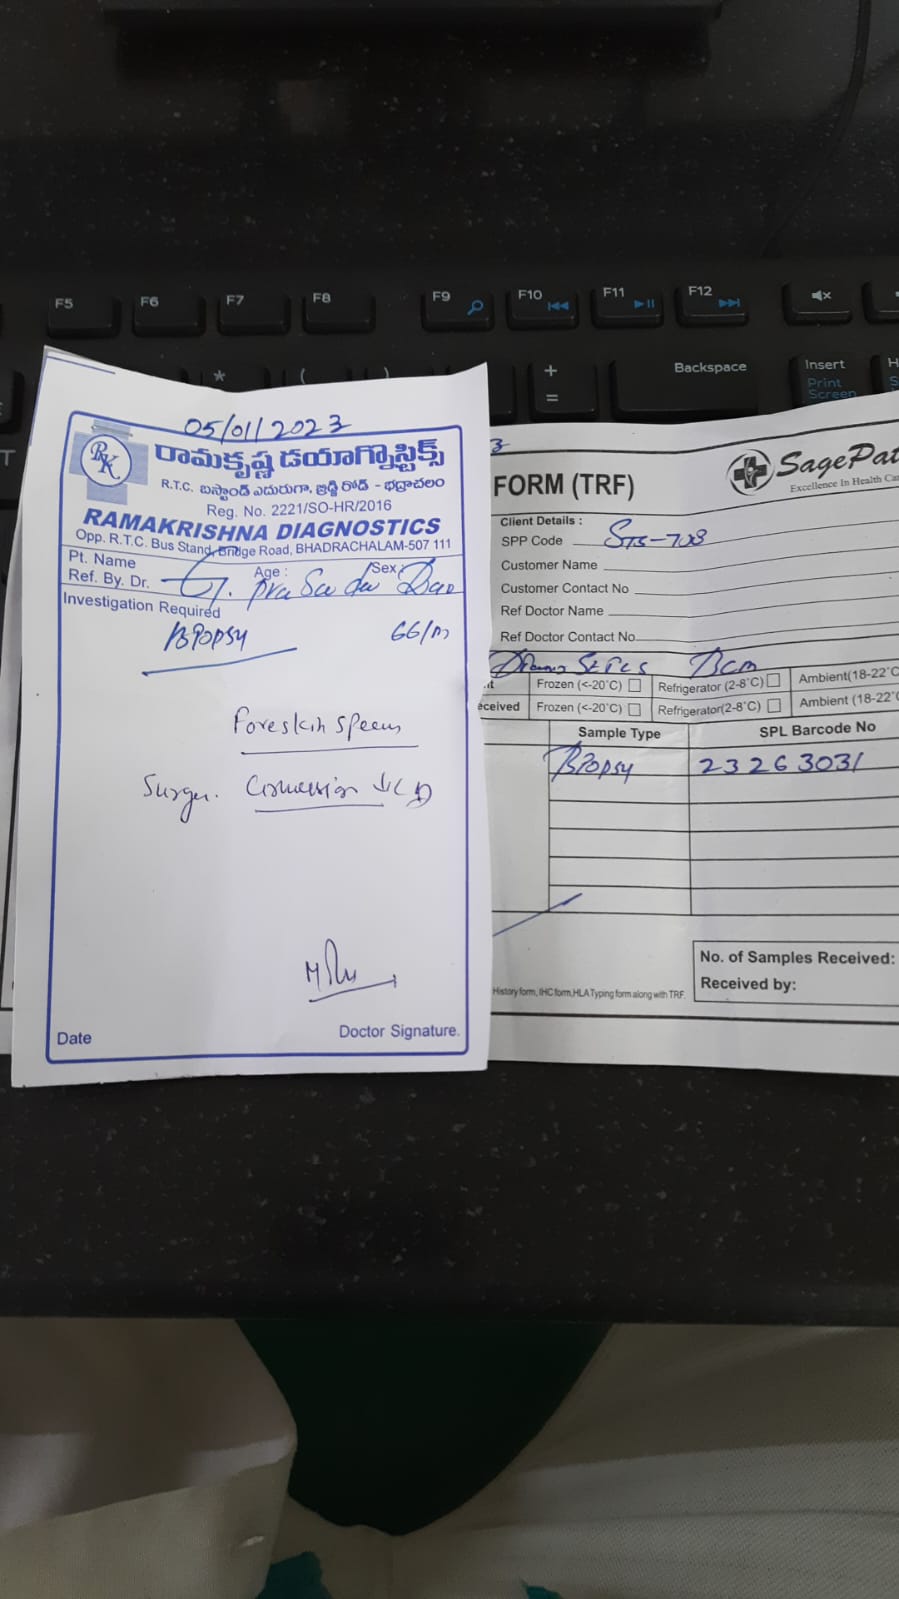 F5 F6 F7 F8 F9 F10 F11 F12
* ( ) + = Backspace Insert Print Screen
T
05/01/2023
RK
రామకృష్ణ డయాగ్నొస్టిక్స్
R.T.C. బస్టాండ్ ఎదురుగా, బ్రిడ్జి రోడ్ - భద్రాచలం
Reg. No. 2221/SO-HR/2016
RAMAKRISHNA DIAGNOSTICS
Opp. R.T.C. Bus Stand, Bridge Road, BHADRACHALAM-507 111
Pt. Name Age : Sex :
Ref. By. Dr. G.
Investigation Required
Biopsy 66/m
Foreskin
M
Date Doctor Signature.
3
FORM (TRF)
SagePat
Excellence In Health Car
Client Details :
SPP Code STS-708
Customer Name
Customer Contact No
Ref Doctor Name
Ref Doctor Contact No
Frozen (<-20°C) Refrigerator (2-8°C) Ambient(18-22°C
eceived Frozen (<-20°C) Refrigerator(2-8°C) Ambient (18-22°
Sample Type SPL Barcode No
Biopsy 23263031
No. of Samples Received:
Received by:
History form, IHC form,HLA Typing form along with TRF.